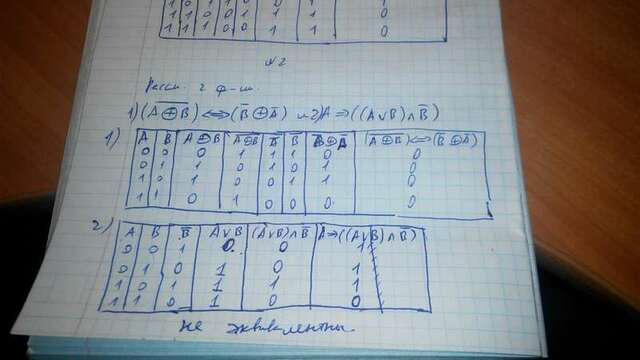 1 1 0 1 0 1 1 0
1 1 1 0 0 1 1 0
N2
Рассм. 2 ф-ии.
1) (A̅ ̅⊕̅ ̅B̅) ⇔ (B̅ ⊕ A̅) и 2) A ⇒ ((A ∨ B) ∧ B̅)
1)
A B A⊕B A̅⊕̅B̅ A̅ B̅ B̅⊕A̅ (A̅⊕̅B̅) ⇔ (B̅⊕A̅)
0 0 0 1 1 1 0 0
0 1 1 0 1 0 1 0
1 0 1 0 0 1 1 0
1 1 0 1 0 0 0 0
2)
A B B̅ A∨B (A∨B)∧B̅ A⇒((A∨B)∧B̅)
0 0 1 0 0 1
0 1 0 1 0 1
1 0 1 1 1 1
1 1 0 1 0 0
не эквивалентны.